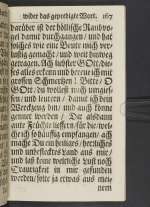 wider das gepredigte Wort. 167
darüber ist der höllische Raubvo-
gel hönd durchgangen / und hat
solches wie eine Beute mich ver-
lustig gemacht / und weit hinweg
getragen. Ach liebster GOtt / die-
ses alles erkenn und bereue ich mit
grossen Schmertzen! Bitte / O
GOtt / du wollest mich umgies-
sen / und leutern / damit ich dein
Werckzeug bin / und auch könne
genennet werden / Der alsdann
gute Früchte lieffern / für die wel-
che ich so häuffig empfangen / ach
mache Du ein heiliges / herrliches
und unbeflecktes Land aus mir /
und laß keine weltliche Lust noch
Traurigkeit in mir gefunden
werden / wie ja etwas aus mei-
nem